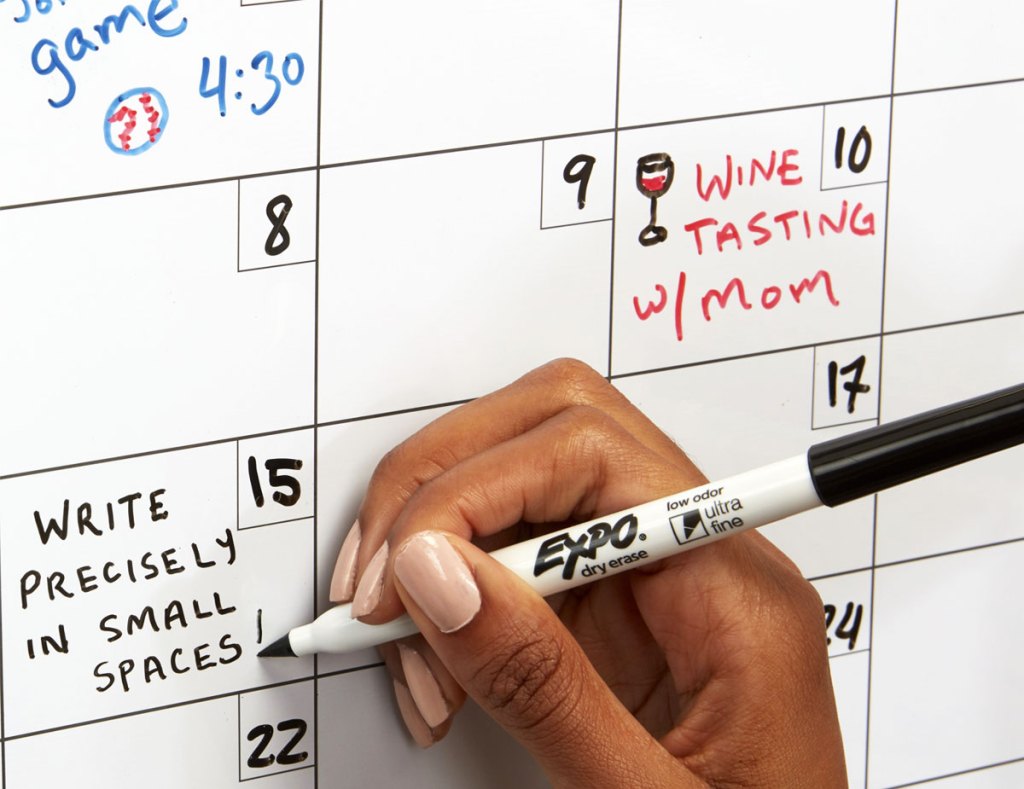 game
4:30
8
9
10
WINE
TASTING
w/mom
15
WRITE
PRECISELY
IN SMALL
SPACES!
17
24
22
EXPO®
dry erase
low odor
ultra
fine